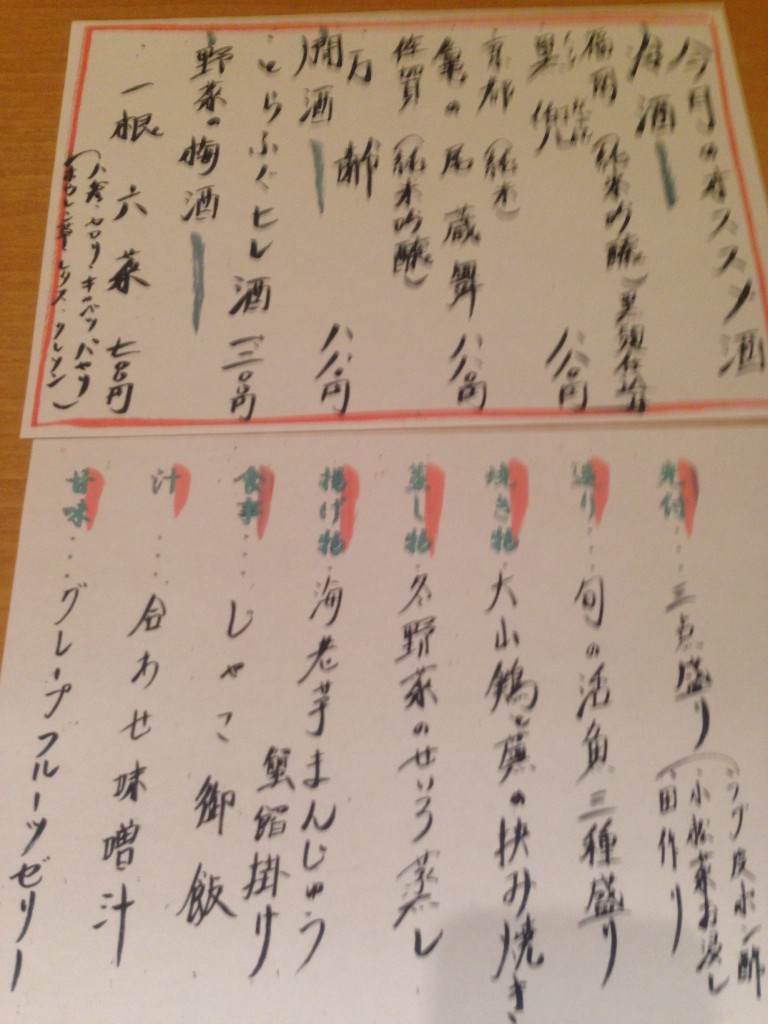 今月のオススメ酒
海酒
福岡(純米吟醸)黒頭仕舞
黒兜 八八〇円
京都(純米)
亀の尾蔵舞 八八〇円
佐賀(純米吟醸)
万齢 八八〇円
燗酒
とらふぐヒレ酒 一三〇〇円
野菜の梅酒
一根六菜 七〇〇円
(人参・セロリ・キャベツ・パセリ
ほうレン草・レタス・クレソン)
先付…三点盛り(フグ皮ポン酢
小松菜お浸し
田作り
造り…旬の活魚三種盛り
焼き物 大山鶏と蓮の挟み焼き
蒸し物 冬野菜のせいろ蒸し
揚げ物 海老芋まんじゅう
蟹餡掛け
食事…じゃこ御飯
汁…合わせ味噌汁
甘味…グレープフルーツゼリー